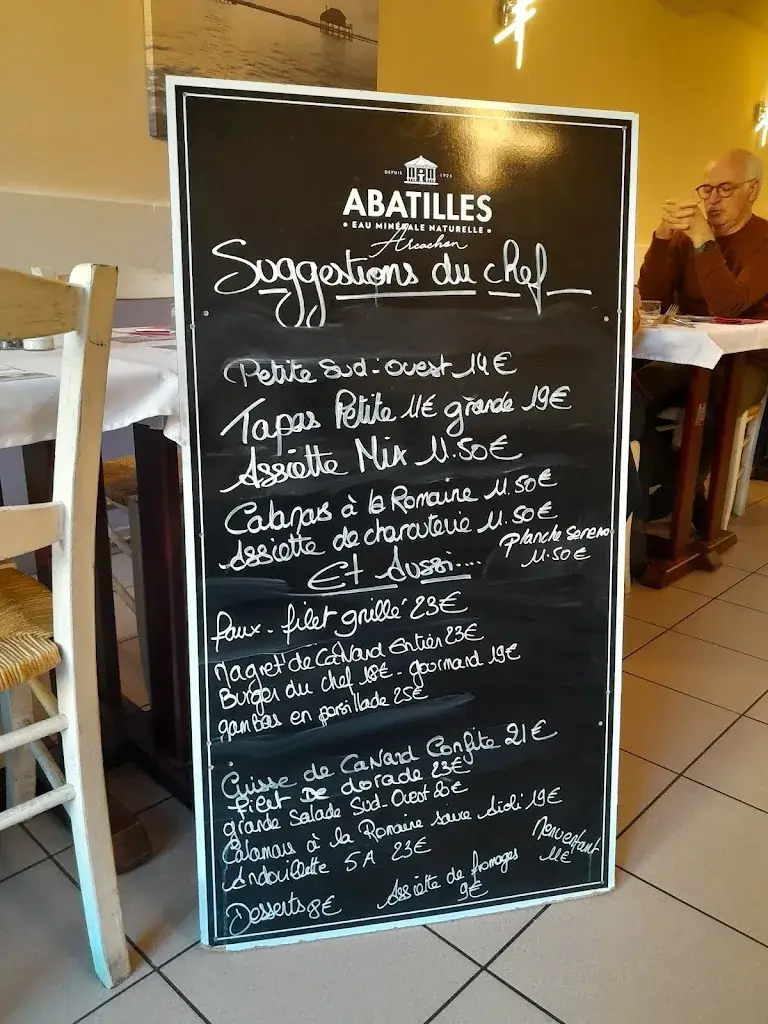 DEPUIS 1923
ABATILLES
• EAU MINÉRALE NATURELLE •
Arcachon
Suggestions du chef
Petite Sud-Ouest 14€
Tapas Petite 11€ grande 19€
Assiette Mix 11.50€
Calamas à la Romaine 11.50€
Assiette de charcuterie 11.50€
Planche Serrano
11.50€
Et Aussi...
faux-filet grillé 23€
Magret de Canard Entier 23€
Burger du chef 18€ - gourmand 19€
gambas en persillade 25€
Cuisse de Canard Confite 21€
filet De dorade 23€
grande Salade Sud-Ouest 20€
Calamars à la Romaine sauce Aïoli 19€
Andouillette 5A 23€
Menu enfant
11€
Assiette de fromages
9€
Desserts 8€